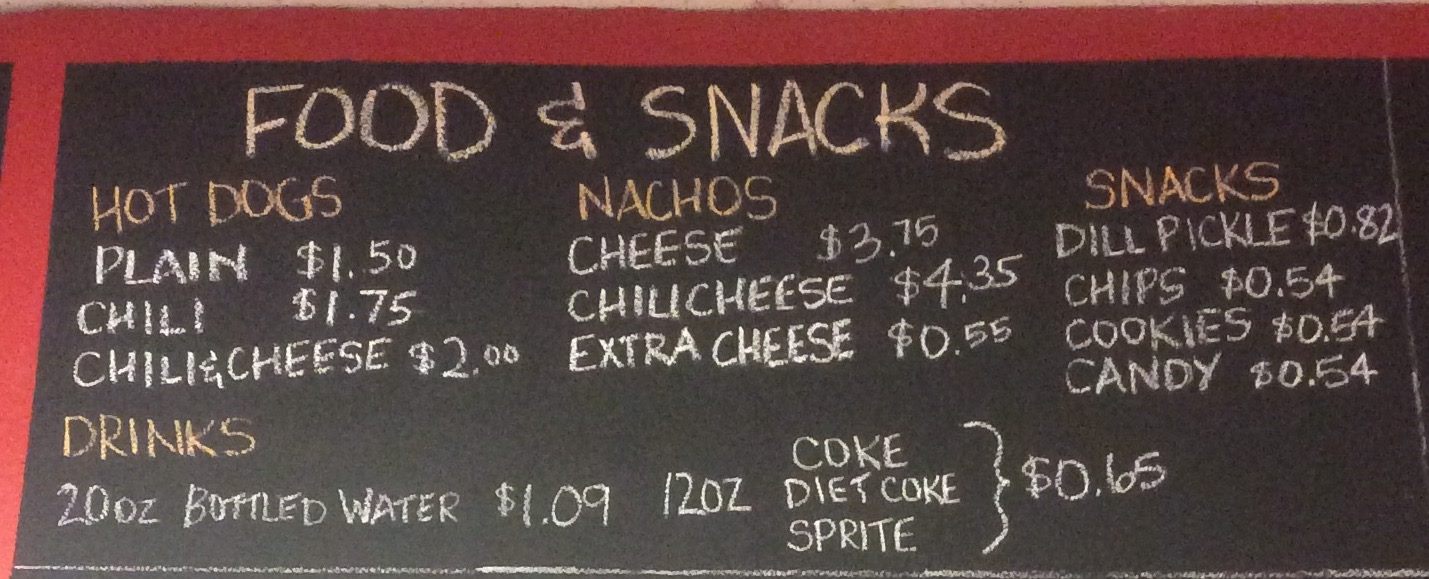 FOOD & SNACKS
HOT DOGS
PLAIN $1.50
CHILI $1.75
CHILI & CHEESE $2.00
NACHOS
CHEESE $3.75
CHILICHEESE $4.35
EXTRA CHEESE $0.55
SNACKS
DILL PICKLE $0.82
CHIPS $0.54
COOKIES $0.54
CANDY $0.54
DRINKS
20oz BOTTLED WATER $1.09
12OZ
COKE
DIET COKE
SPRITE
$0.65